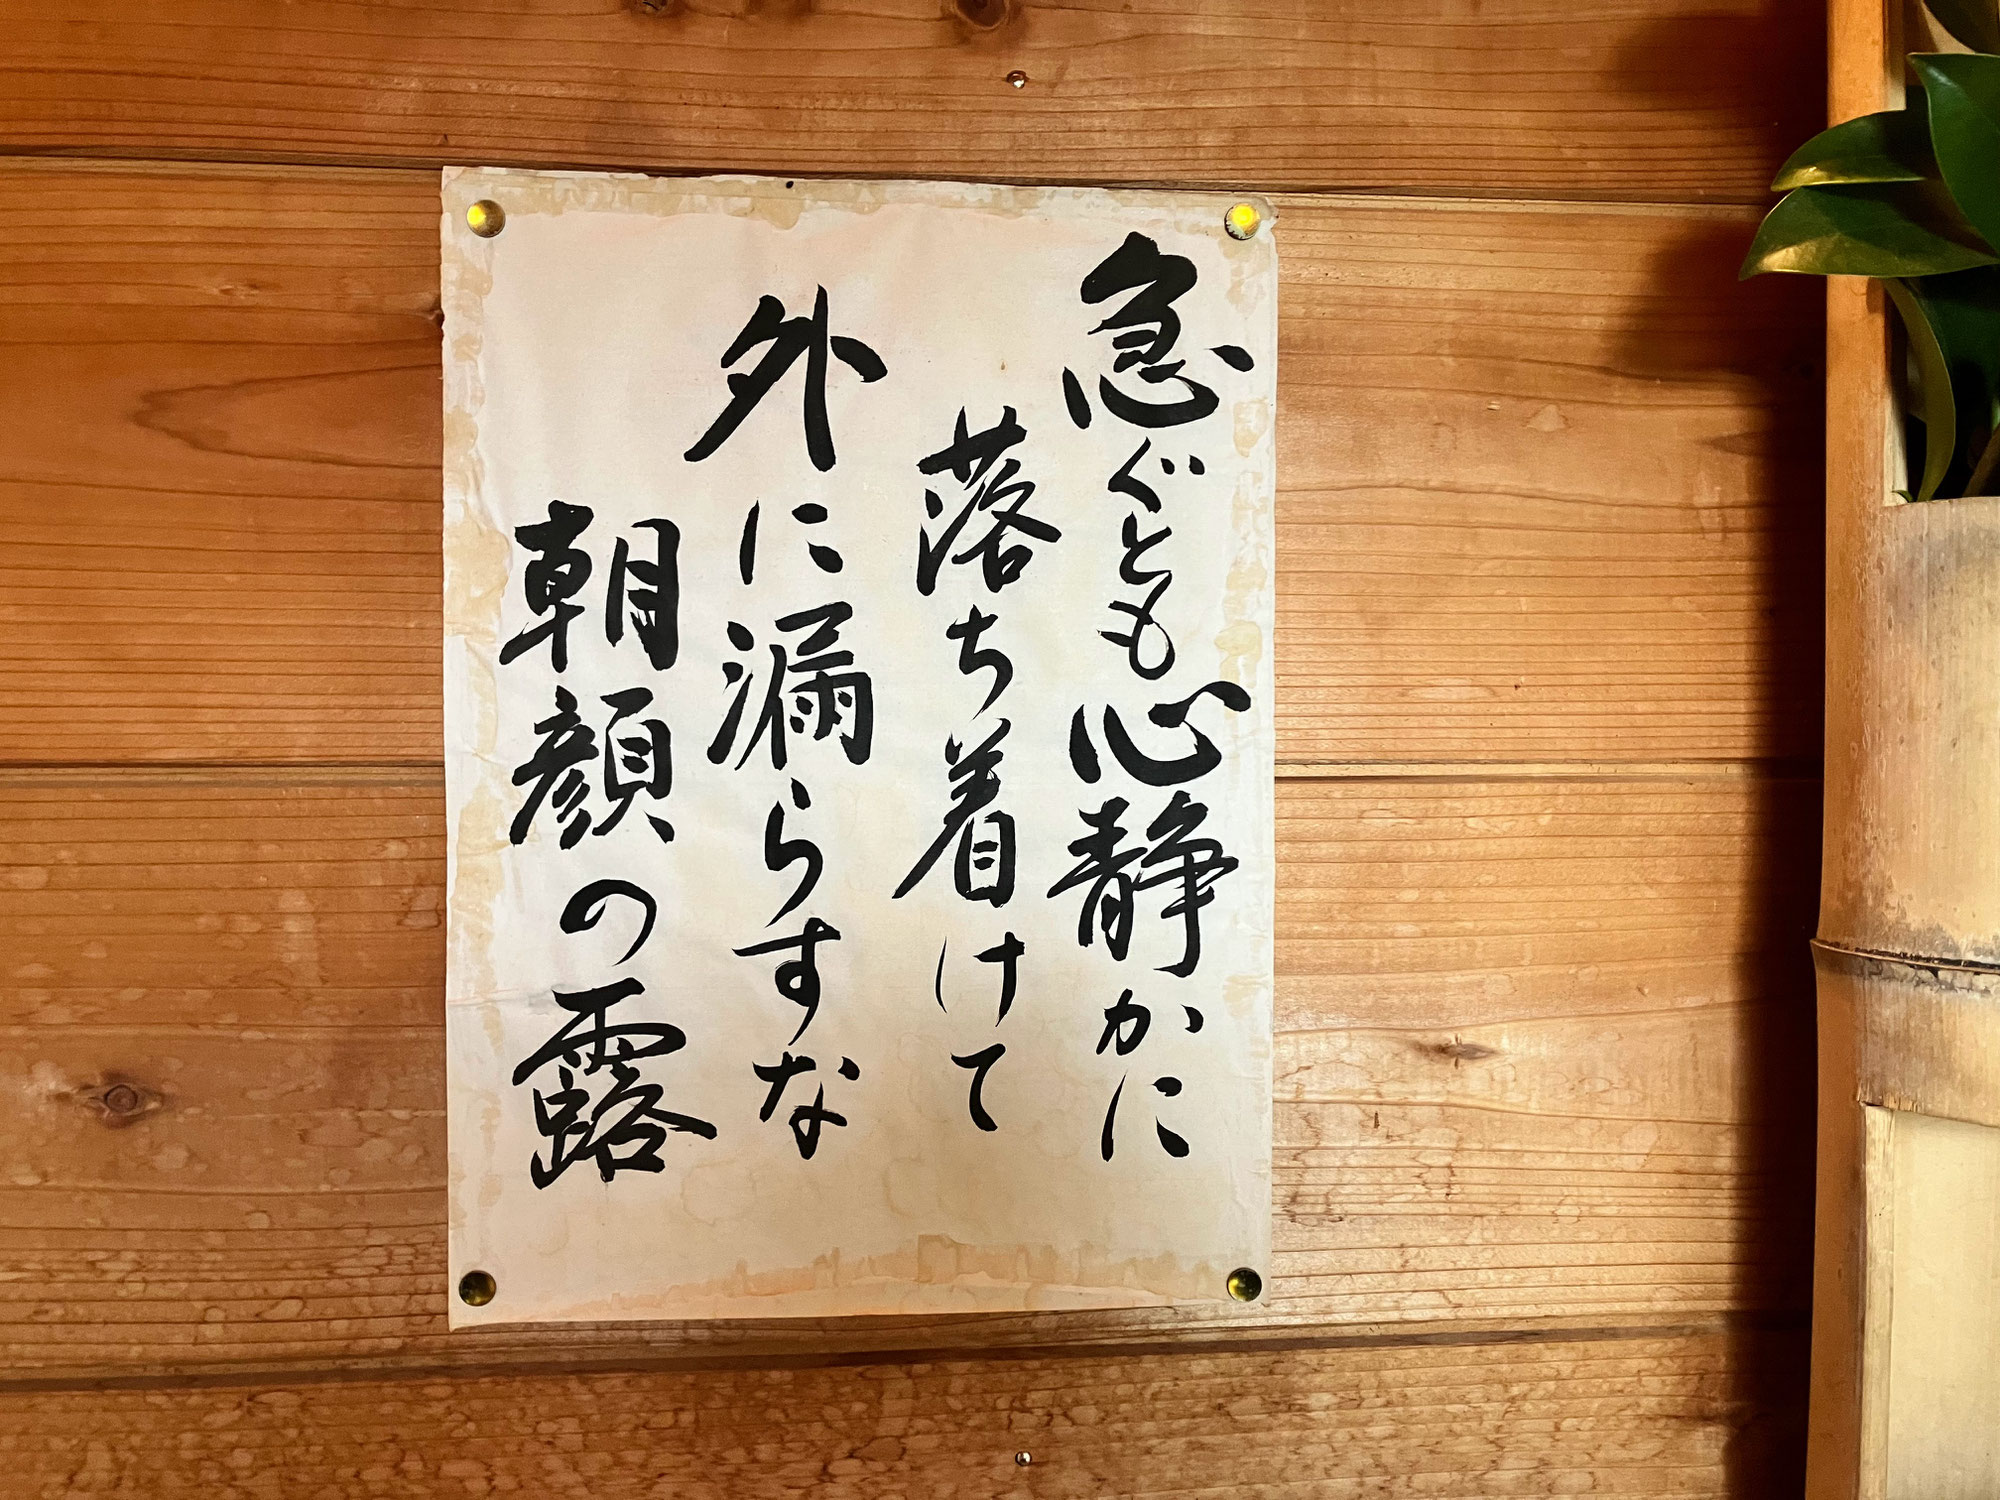 急ぐとも心静かに
落ち着けて
外に漏らすな
朝顔の露